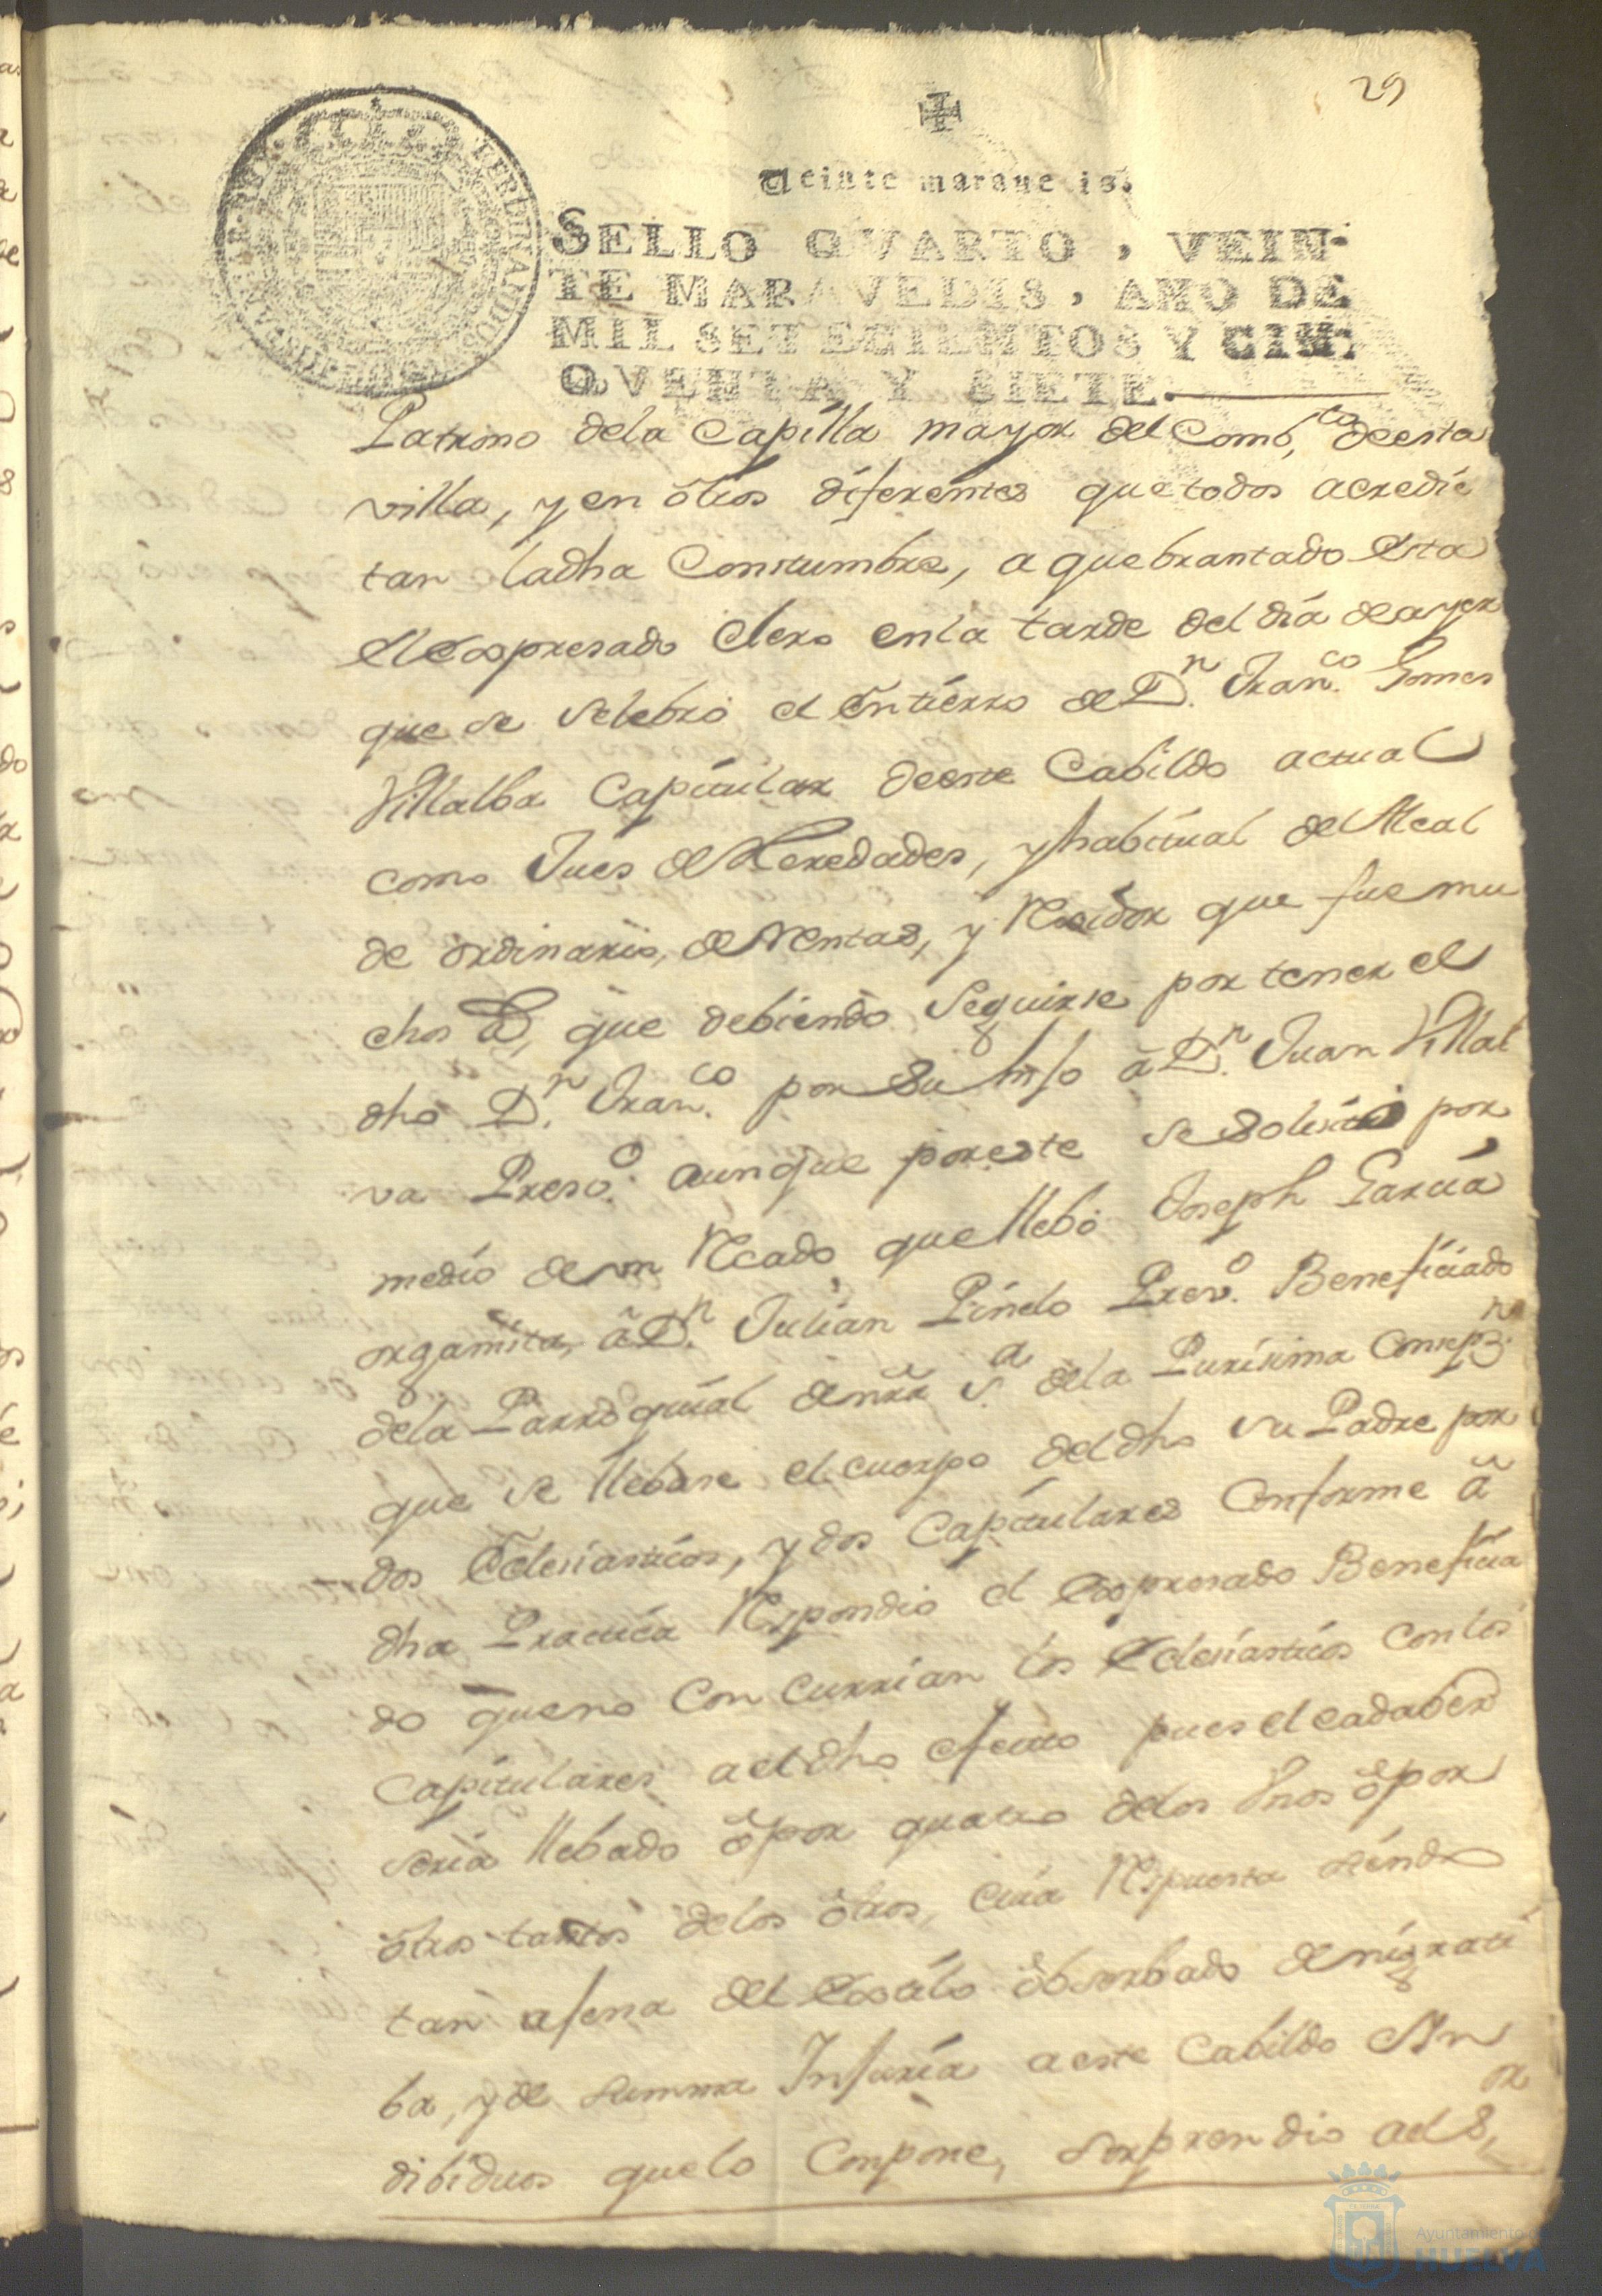 29
Veinte marauedis.
SELLO QVARTO, VEIN-
TE MARAVEDIS, AÑO DE
MIL SETECIENTOS Y CIN-
QVENTA Y SIETE.
Patrono dela Capilla mayor del Comb.to deesta
villa, y en ôtros diferentes que todos acredi
tan la dha Constumbre, a quebrantado esta
el expresado Clero enla tarde del dia de ayer
que se selebró el Entierro de Dn. Franco. Gomes
Villalba Capitular de este Cabildo actual
como Jues de Heredades, y habitual de Alcal
de ordinario, de Rentas, y Rexidor que fue mu
chos a, que debiendo seguirse por tener el
dho Dn. Franco. por su hijo â Dn. Juan Villal
va Presvo. aunque por este se solicitó por
medio de vn Recado que llebó Joseph Garcia
organista, â Dn. Julian Pinelo Prevo. Beneficiado
dela Parroquial de nrã Sa. dela Purisima Consepzn.
que se llebase el cuerpo del dho su Padre por
dos Eclesiasticos, y dos Capitulares Conforme â
dha Practica Respondio el expresado Beneficia
do que no Con currian los Eclesiasticos con los
Capitulares a el dho efecto pues el cadaber
seria llebado ô por quatro delos Vnos ô por
ôtros tantos delos ôtros, cuia Respuesta siendo
tan ajena del estilo obserbado denigrati
ba, y de summa Injuria a este Cabildo è Yn
dibiduos que lo Conpone, sorprendio a el Sor
Ayuntamiento de
HUELVA